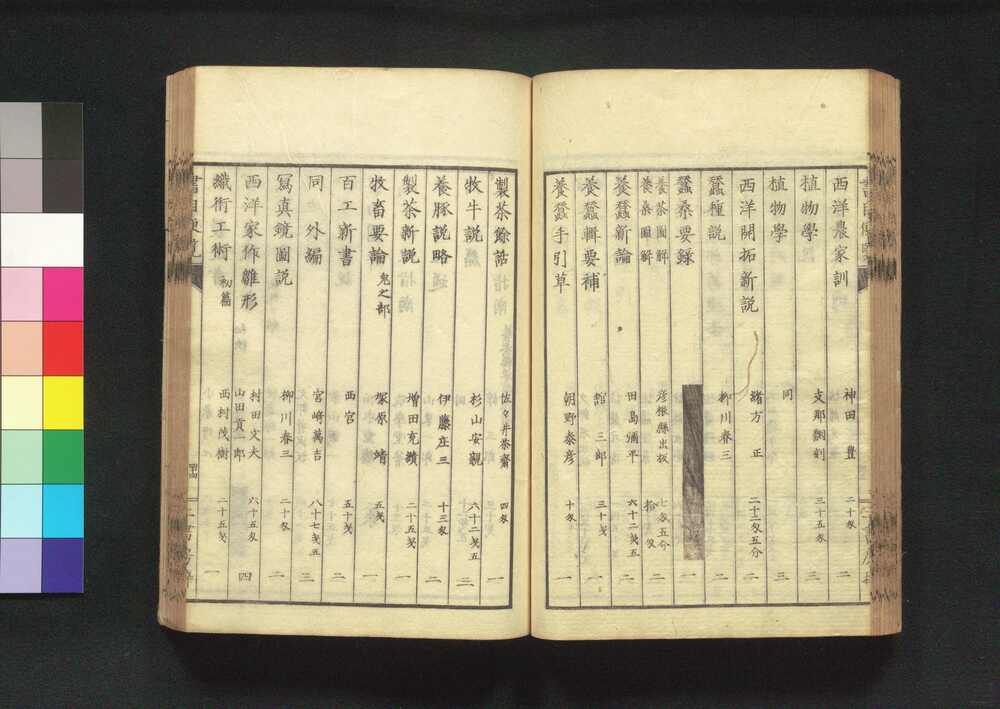 西洋農家訓 神田 豊 二十匁 二
植物學 支那飜刻 三十五匁 二
植物學 同 三
西洋開拓新説 緒方 正 二十二匁五分 二
蠶種説 柳川春三 二
蠶桑要録 一
養茶圖解
養桑圖解 彦根縣出板 拾匁 二
養蠶新論 田島彌平 六十二匁五 二
養蠶輯要補 舘 三郎 三十匁 一
養蠶手引草 朝野泰彦 十匁 一
製茶餘話 佐々井茶齋 四匁 一
牧牛説 杉山安親 六十二匁五 三
養豚説略 伊藤庄三 十三匁 二
製茶新説 増田充績 二十五匁 一
牧畜要論 兎之部 塚原 靖 五匁 一
百工新書 西宮 五十匁 二
同 外編 宮﨑萬吉 八十七匁五 三
寫真鏡圖説 柳川春三 二十匁 二
西洋家作雛形 村田文夫 山田貢一郎 六十五匁 四
織術工術 初篇 西村茂樹 二十五匁 一